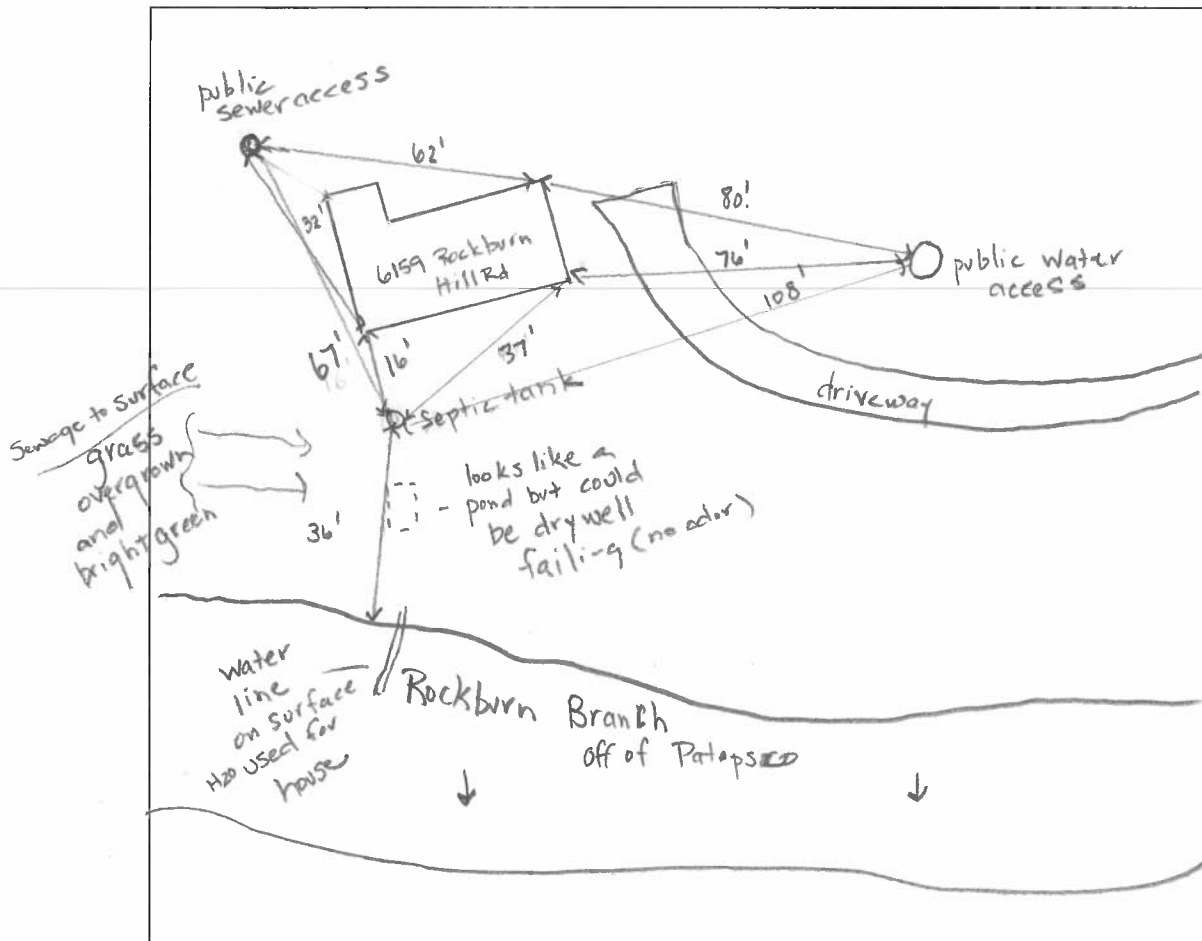 public
sewer access
62'
80'
32'
6159 Rockburn
Hill Rd
76'
public water
access
108'
67'
16'
37'
septic tank
driveway
Sewage to surface
grass
overgrown
and
bright green
looks like a
pond but could
be drywell
failing (no odor)
36'
water
line
on surface
H2O used for
house
Rockburn Branch
off of Patapsco